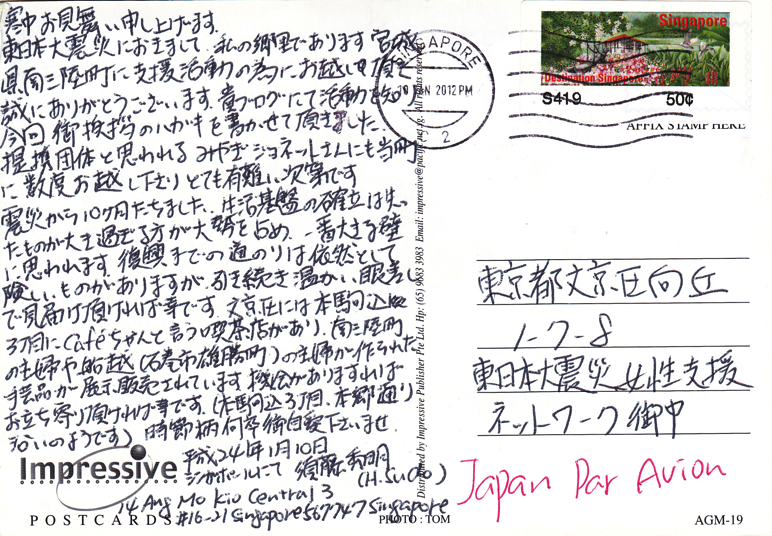 寒中お見舞い申し上げます。
東日本大震災におきまして、私の郷里であります宮城
県南三陸町に支援活動の為にお越し頂き
誠にありがとうございます。貴ブログにて活動を知り
今回御挨拶のハガキを書かせて頂きました。
提携団体と思われるみやぎジョネットさんにも当町
に数度お越し下さりとても有難い次第です
震災から10ヶ月たちました。生活基盤の確立は失っ
たものが大き過ぎる方が大勢を占め、一番大きな壁
に思われます。復興までの道のりは依然として
険しいものがありますが、引き続き温かい眼差し
で見届け頂ければ幸です。文京区には本駒込
3丁目にcaféちゃんと言う喫茶店があり、南三陸町
の主婦や船越(石巻市雄勝町)の主婦が作られた
手芸品が展示販売されています 機会がありますれば
お立ち寄り頂ければ幸です。(本駒込3丁目、本郷通り
沿いのようです) 時節柄何卒御自愛下さいませ
平成24年1月10日
シンガポールにて 須藤秀明
(H.Sudo)
14 Ang Mo Kio Central 3
#16-21 Singapore 567747 Singapore
Impressive
POSTCARDS
PHOTO : TOM
AGM-19
Distributed by Impressive Publisher Pte Ltd. Hp: (65) 9683 3983 Email: impressive@pacific.net.sg. All rights reserved
SINGAPORE
JAN 2012 PM
2
Singapore
Destination Singapore
S419
50¢
AFFIX STAMP HERE
東京都文京区向丘
1-7-8
東日本大震災女性支援
ネットワーク御中
Japan Par Avion